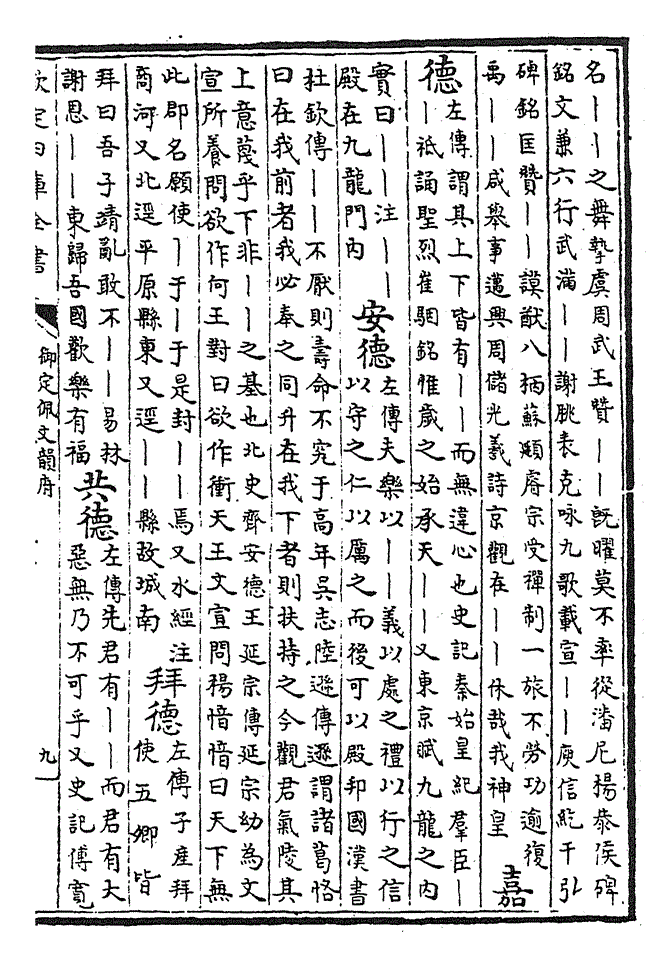 名丨丨之舞摯虞周武王贊丨丨旣曜莫不率從潘尼楊恭侯碑
銘文兼六行武滿丨丨謝朓表克咏九歌載宣丨丨庾信紇干弘
碑銘匡贊丨丨謨猷八柄蘇頲睿宗受禪制一旅不勞功逾復
禹丨丨咸舉事邁興周儲光羲詩京觀在丨丨休哉我神皇
嘉
德
左傳謂其上下皆有丨丨而無違心也史記秦始皇紀羣臣丨
丨祗誦聖烈崔駰銘惟歲之始承天丨丨又東京賦九龍之內
實曰丨丨注丨丨
殿在九龍門內
安德
左傳夫樂以丨丨義以處之禮以行之信
以守之仁以厲之而後可以殿邦國漢書
杜欽傳丨丨不厭則壽命不究于高年吳志陸遜傳遜謂諸葛恪
曰在我前者我必奉之同升在我下者則扶持之今觀君氣陵其
上意蔑乎下非丨丨之基也北史齊安德王延宗傳延宗幼為文
宣所養問欲作何王對曰欲作衝天王文宣問楊愔愔曰天下無
此郡名願使丨于丨于是封丨丨焉又水經注
商河又北逕平原縣東又逕丨丨縣故城南
拜德
左傳子產拜
使五卿皆
拜曰吾子靖亂敢不丨丨易林
謝恩丨丨東歸吾國歡樂有福
共德
左傳先君有丨丨而君有大
惡無乃不可乎又史記傅寬
欽定四庫全書
御定佩文韻府
九